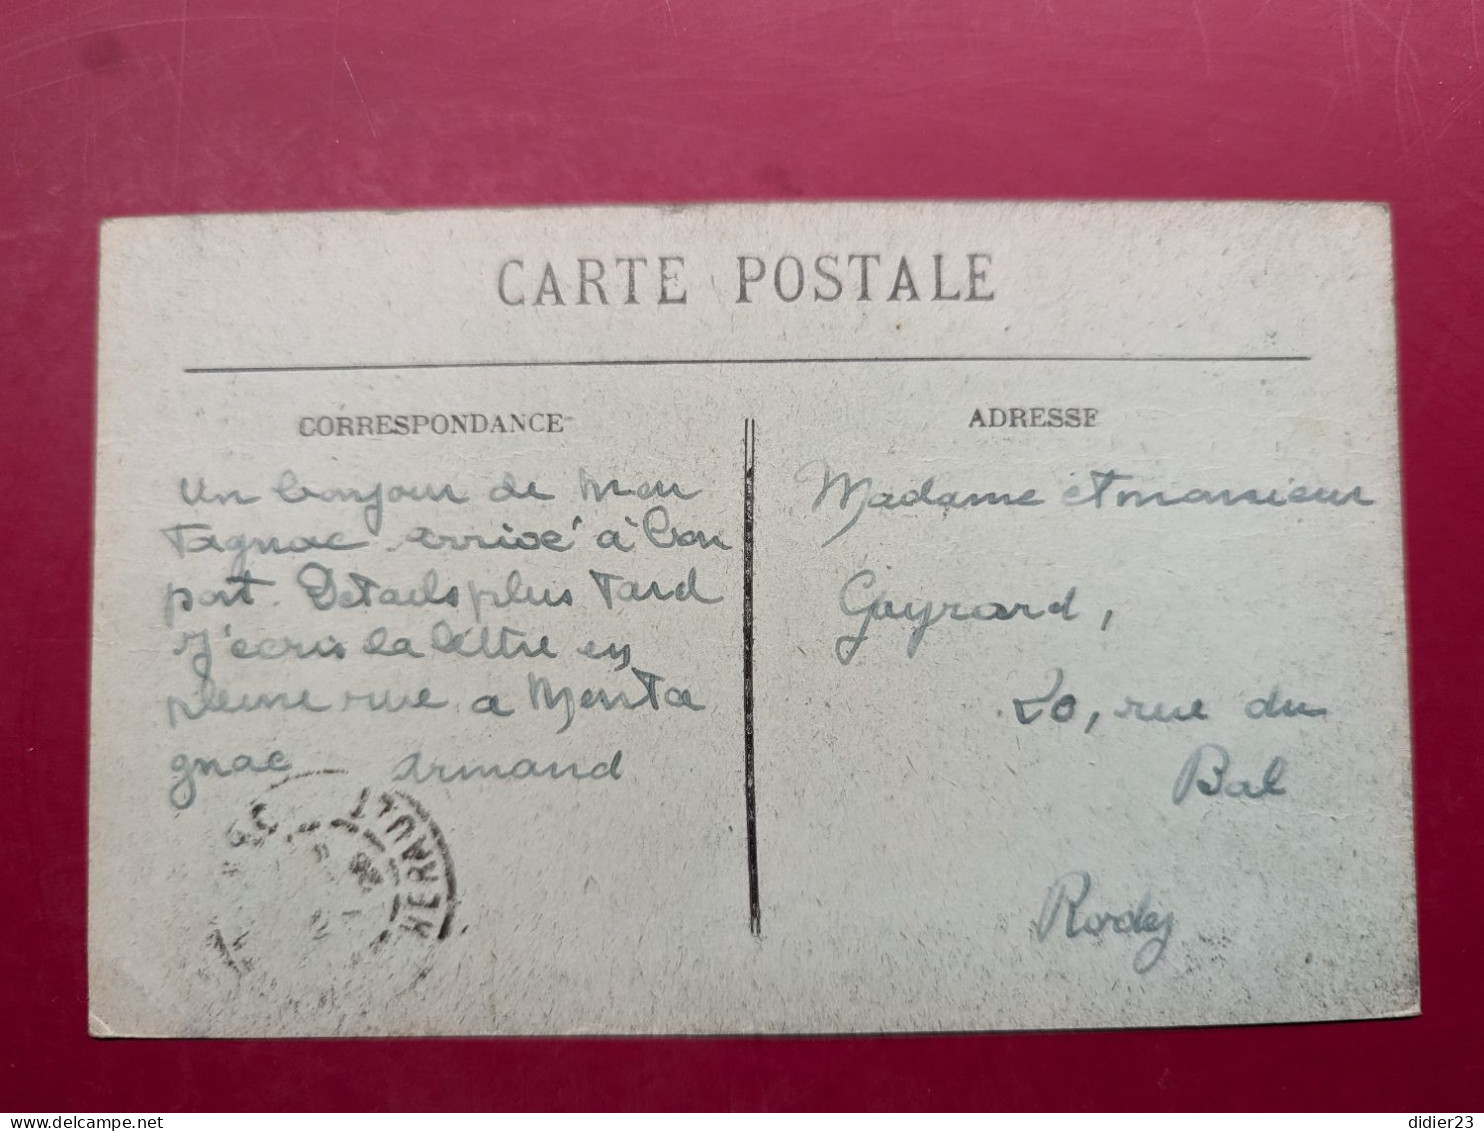 CARTE POSTALE
CORRESPONDANCE
ADRESSE
Un bonjour de Mon
tagnac arrivé à bon
port. Details plus tard
J'écris la lettre en
pleine rue a Monta
gnac Armand
Madame et monsieur
Gayrard,
20, rue du
Bal
Rodez
HERAULT
didier23